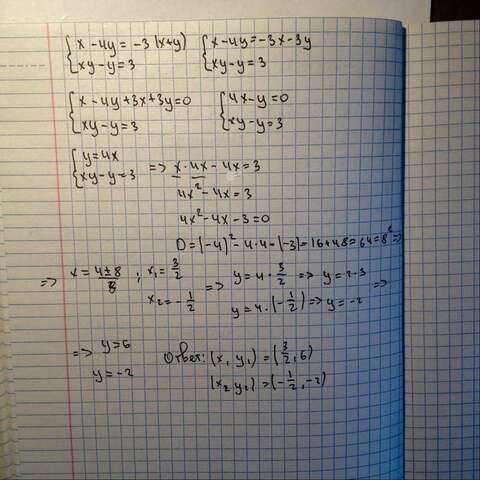 { x - 4y = -3(x+y) { x - 4y = -3x - 3y
{ xy - y = 3 { xy - y = 3
{ x - 4y + 3x + 3y = 0 { 4x - y = 0
{ xy - y = 3 { xy - y = 3
{ y = 4x => x · 4x - 4x = 3
{ xy - y = 3
4x² - 4x = 3
4x² - 4x - 3 = 0
D = (-4)² - 4·4·(-3) = 16 + 48 = 64 = 8² =>
=> x = (4 ± 8)/8 ; x₁ = 3/2 => y = 4 · 3/2 => y = 2·3 =>
x₂ = -1/2 y = 4 · (-1/2) => y = -2
=> y = 6 Ответ: (x, y₁) = (3/2, 6)
y = -2 (x₂ y₂) = (-1/2, -2)